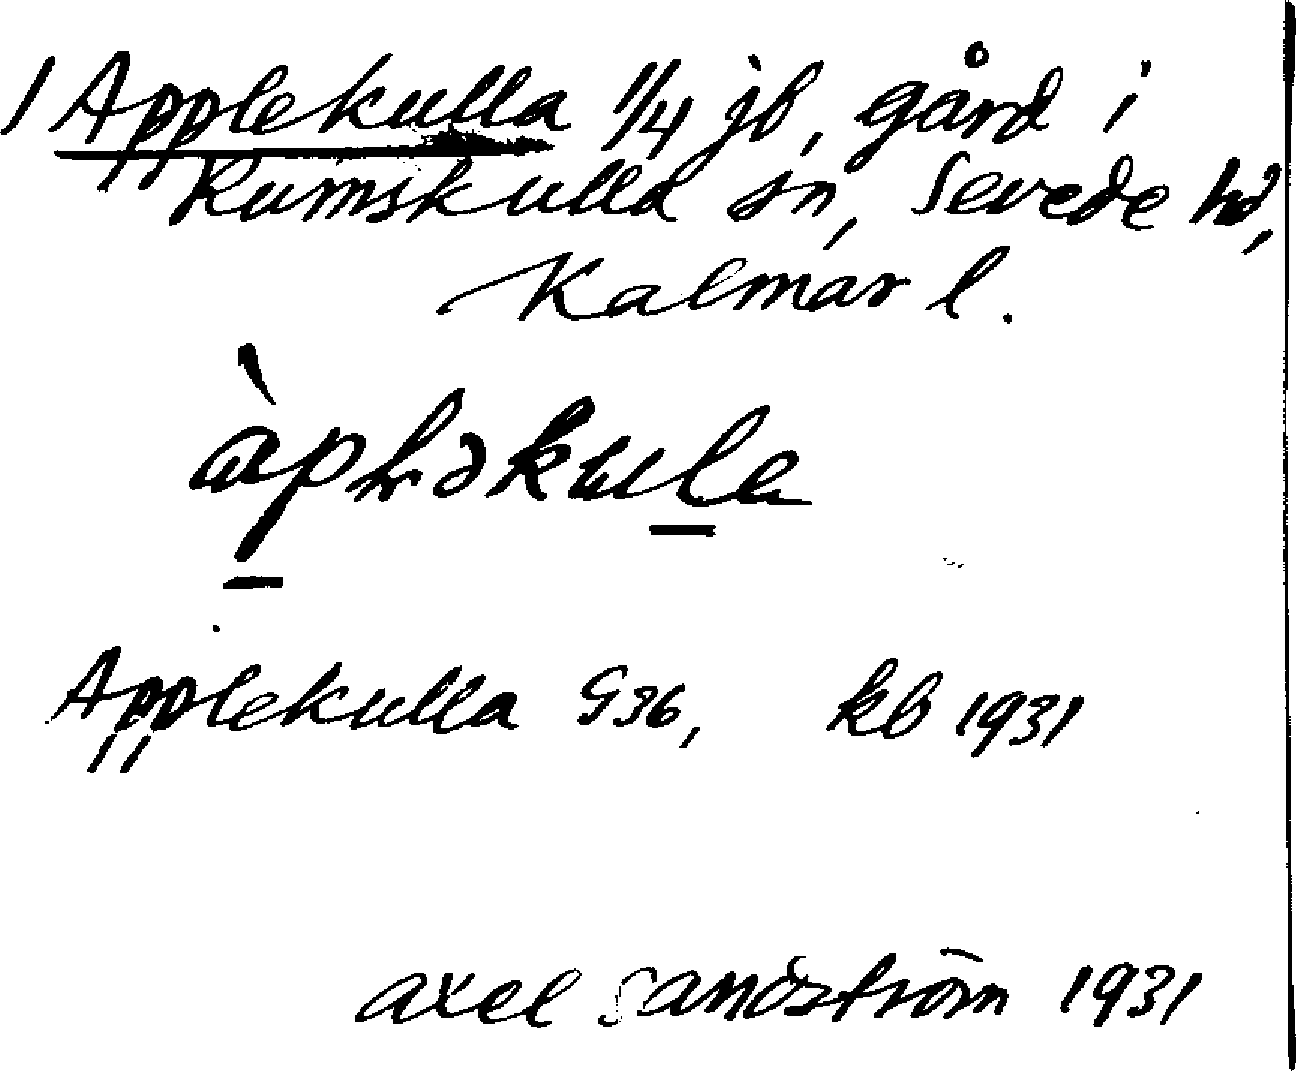 1 Applekulla 1/4 jb, gård i
Rumskulla sn, Sevede hd,
Kalmar l.
àplǝkula
Applekulla G36, kb 1931
axel Sandström 1931